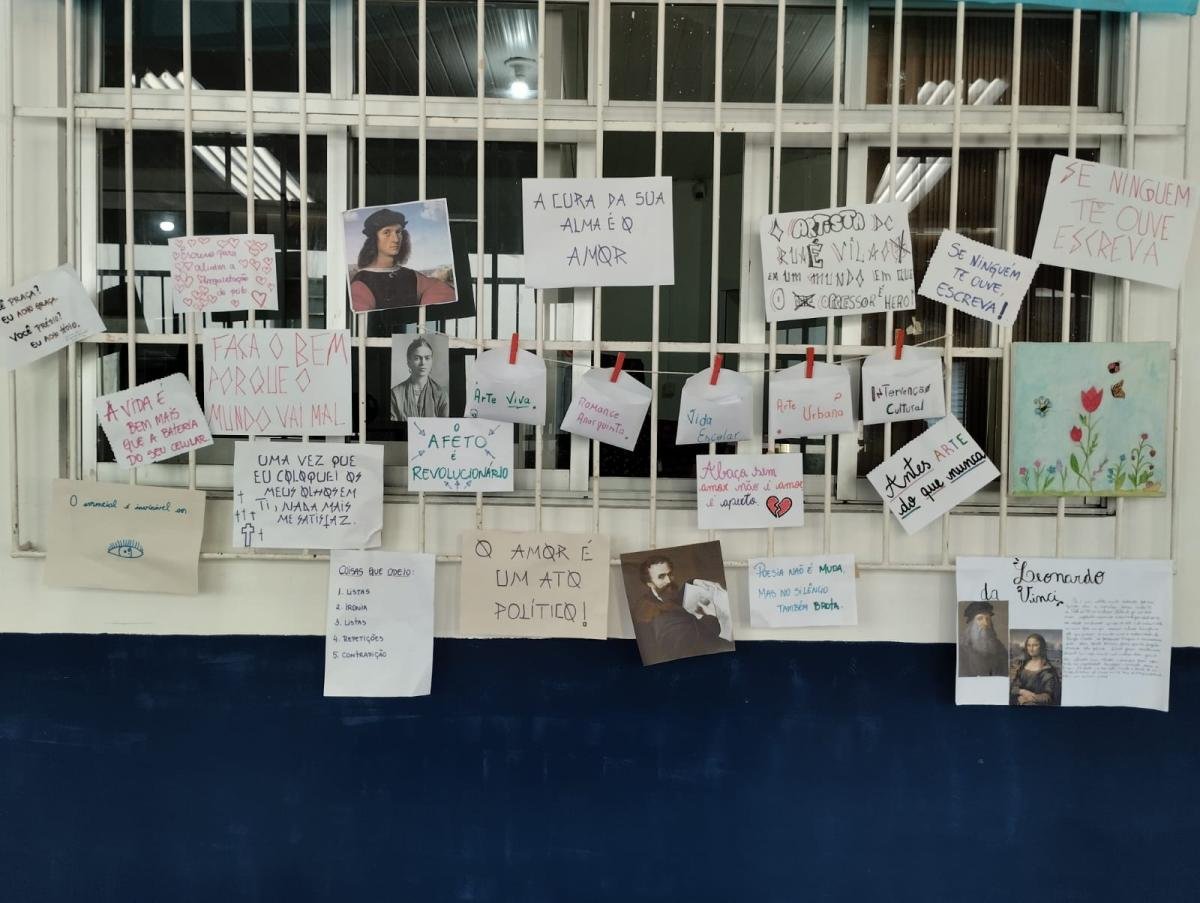 A CURA DA SUA
ALMA É O
AMOR
O ARTISTA DE
RUA É VILÃO
EM UM MUNDO EM QUE
O OPRESSOR É HERÓI
SE NINGUEM
TE OUVE
ESCREVA
SE NINGUÉM
TE OUVE,
ESCREVA!
PRAÇA?
EU ACHO GRAÇA
VOCÊ PRÉDIO?
EU ACHO
para
aliviar a
A VIDA É
BEM MAIS
QUE A BATERIA
DO SEU CELULAR.
FAÇA O BEM
PORQUE O
MUNDO VAI MAL
Arte Viva.
Romance
Anarquista.
Vida
Escolar
Arte
Urbana
Intervenção
Cultural
O
AFETO
É
REVOLUCIONÁRIO
UMA VEZ QUE
EU COLOQUEI OS
MEUS OLHOS EM
TI, NADA MAIS
ME SATISFAZ.
Abaça sem
amor não é amor
é aperto.
Antes ARTE
do que nunca
O essencial é invisível
COISAS QUE ODEIO:
1. LISTAS
2. IRONIA
3. LISTAS
4. REPETIÇÕES
5. CONTRADIÇÃO
O AMOR É
UM ATO
POLÍTICO!
POESIA NÃO É MUDA,
MAS NO SILÊNCIO
TAMBÉM BROTA.
Leonardo
da Vinci